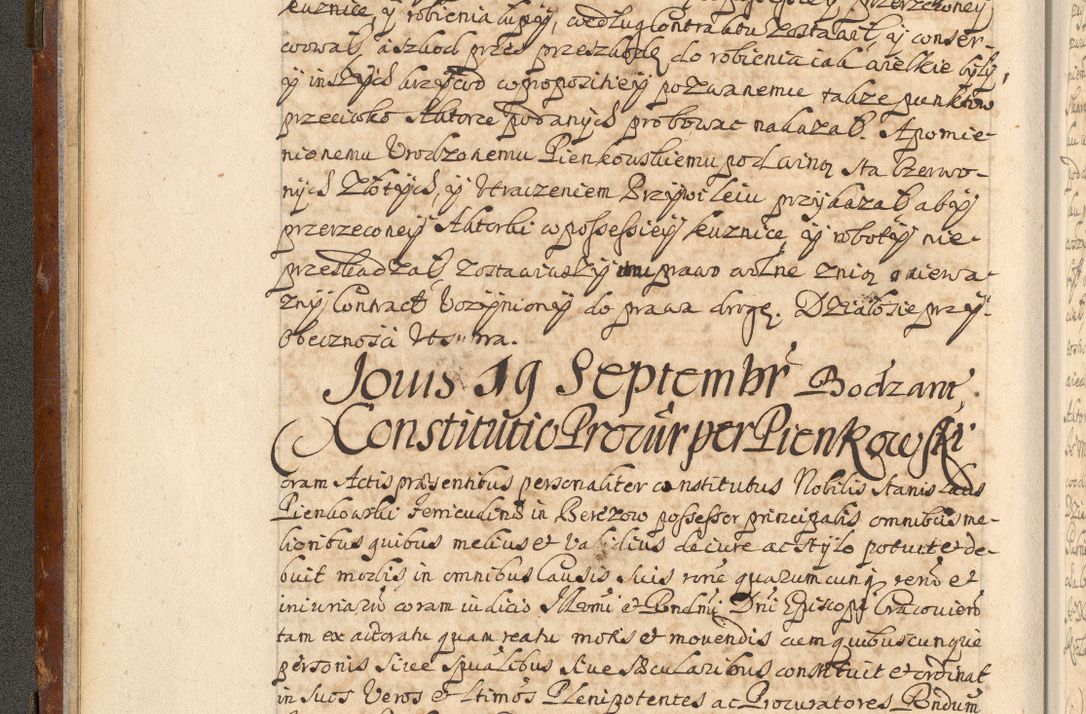 kuznicę, ÿ robienia lupÿ, według Contractu zostaiąc, ÿ conser-
wował, a szkod przez przeszkodę do robienia iak wielkie bÿłÿ,
ÿ inszÿch krzÿwd w propozitiеÿ pozwanemu także punktow
przeciwko Aktorce podanÿch probować nakazał. A pomie-
nionemu Urodzonemu Pienkowskiemu pod winą sta Czerwo-
nÿch Złotÿch, ÿ Utraczeniem Przÿwileiu przÿkazał abÿ
przerzeconeÿ Aktorki w possessieÿ kuznice ÿ robotÿ nie-
przeszkadzał, zostawiwszÿ mu prawo wolne znią o niewa-
znÿ Contract Uczÿnionÿ do prawa drogę. Działosie przÿ
Obecznosci Ut supra.
Jovis 19 Septembr̃ Bodzant,
Constitutio Procur̃ per Pienkowski
Coram Actis præsentibus personaliter constitutus Nobilis Stanislaus
Pienkowski ferricudinæ in Berezow possessor principalis omnibus me-
lioribus quibus melius et validius de iure ac stÿlo potuit et de-
buit modis, in omnibus Causis suis rõne quarumcunq̃ rerũ et
iniuriarũ coram iudicio Illmi et Rndmi Dni Episcopi Cracovien̄
tam ex actoratu quam reatu motis et movendis cum quibuscunque
personis sive spũalibus sive sæcularibus constituit et ordinat
in suos veros et ltimos Plenipotentes ac Procuratores Rndum